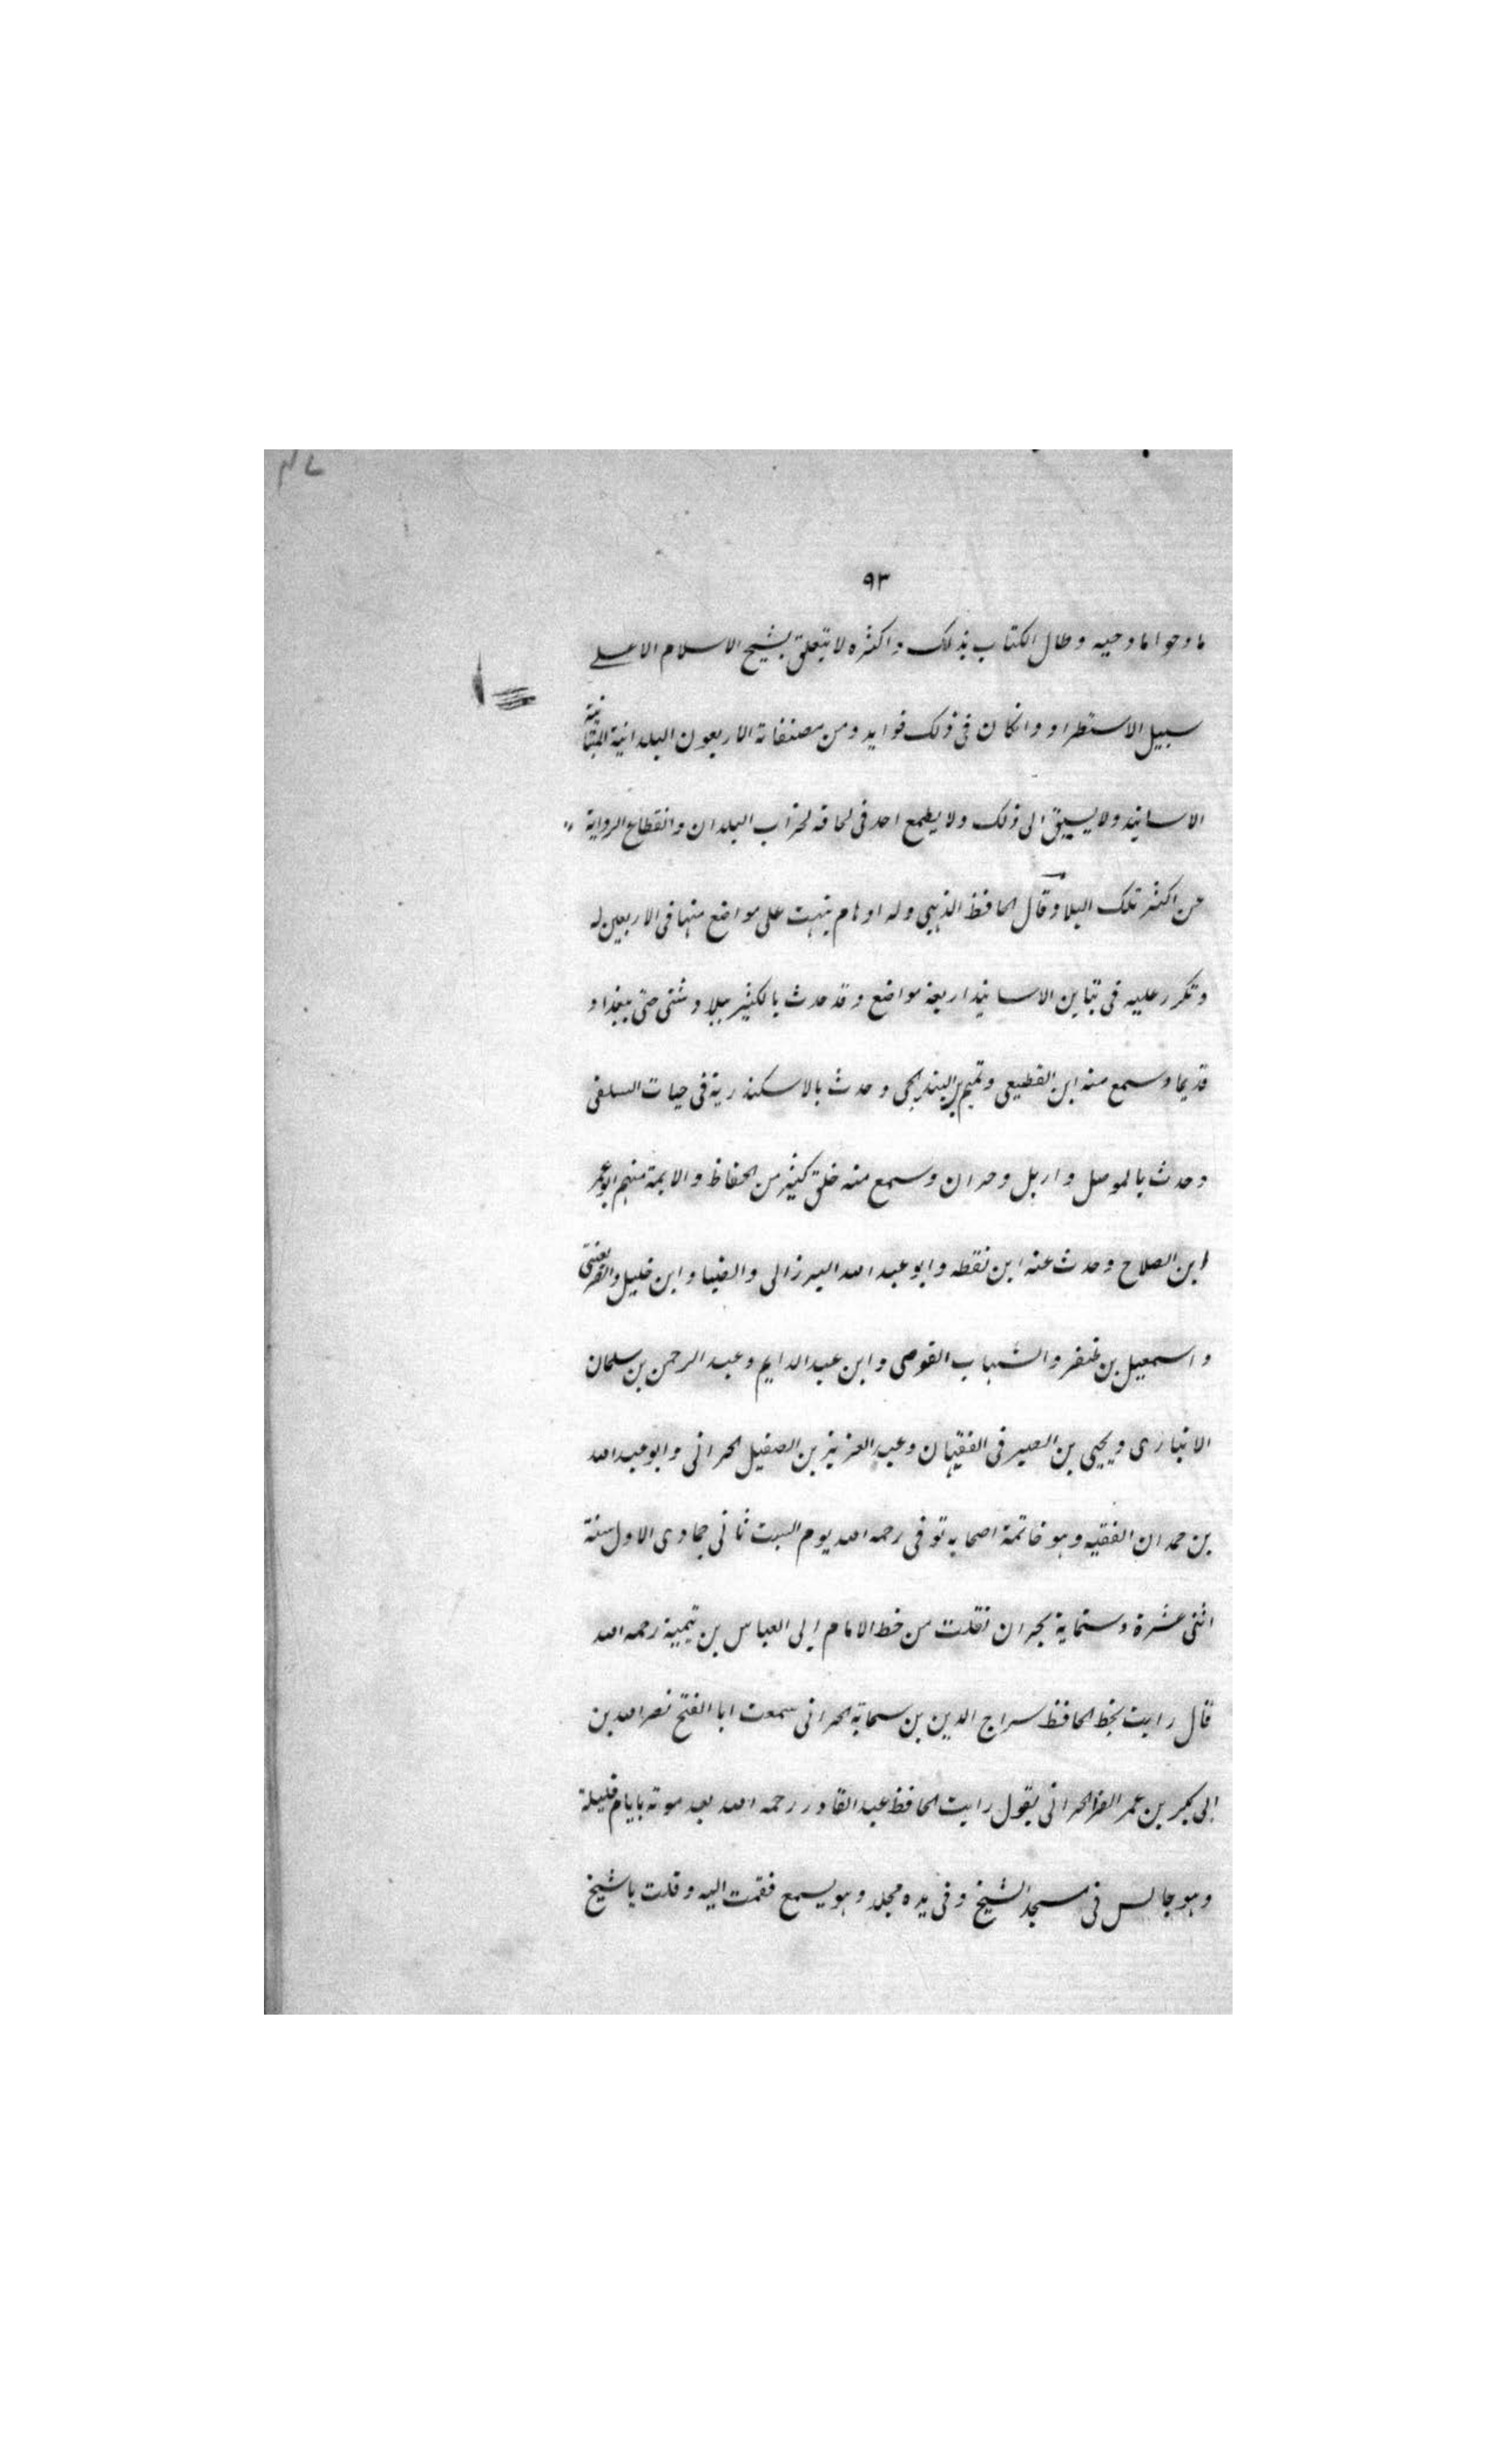 ٩٣
ماوحوا مادحيه وطال الكتاب بذلك واكثره لا تتعلق بشيخ الاسلام الا على
سبيل الاستطراد وان كان فى ذلك فوايد ومن مصنفاته الاربعون البلدانية المتباينة
الاسانيد ولا يسبق الى ذلك ولا يطمع احد فى لحاقه لخراب البلدان وانقطاع الرواية
عن اكثر تلك البلاد وقال الحافظ الذهبى وله اوهام ينبهت على مواضع منها فى الاربعين له
وتكرر عليه فى تباين الاسانيد اربعة مواضع وقد حدث بالكثير ببلاد شتى حتى ببغداد
قديما وسمع منه ابن القطيعى وتميم بن البندنيجى وحدث بالاسكندرية فى حيات السلفى
وحدث بالموصل واربل وحران وسمع منه خلق كثير من الحفاظ والايمة منهم ابو عمر
ابن الصلاح وحدث عنه ابن نقطه وابو عبد الله البرزالى والضياء وابن خليل والصريفينى
واسمعيل بن ظفر والشهاب القوصى وابن عبد الدايم وعبد الرحمن بن سلمان
الانبارى ويحيى بن الصيرفى الفقيهان وعبد العزيز بن الصقيل الحرانى وابو عبد الله
بن حمدان الفقيه وهو خاتمة اصحابه توفى رحمه الله يوم السبت ثانى جمادى الاول سنة
اثنى عشرة وستماية بحران نقلت من خط الامام ابى العباس بن تيمية رحمه الله
قال رايت بخط الحافظ سراج الدين بن سحابة الحرانى سمعت ابا الفتح نصر الله بن
ابى بكر بن عمر الفرا الحرانى يقول رايت الحافظ عبد القادر رحمه الله بعد موته بايام قليلة
وهو جالس فى مسجد الشيخ وفى يده مجلد وهو يسمع فقمت اليه وقلت يا شيخ